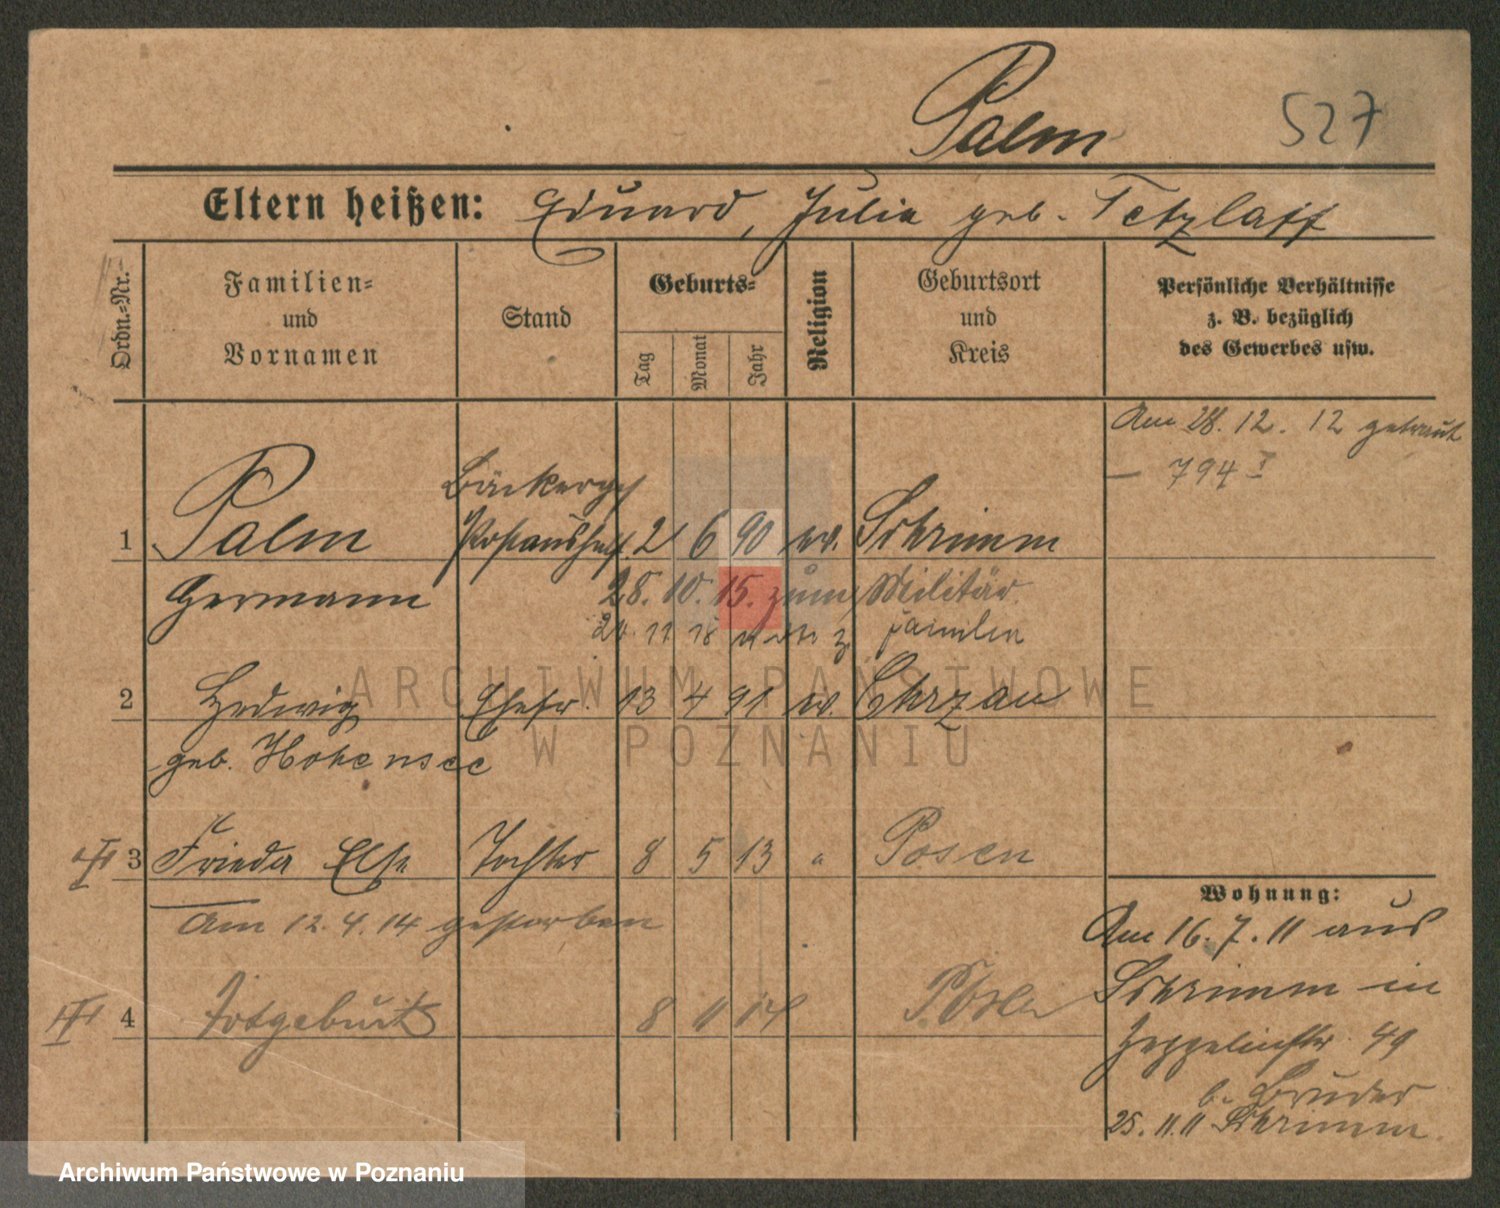 Palm 527
Eltern heißen: Eduard, Julia geb. Tetzlaff
Ordn.-Nr.
Familien-
und
Vornamen
Stand
Geburts-
Tag
Monat
Jahr
Religion
Geburtsort
und
Kreis
Persönliche Verhältnisse
z. B. bezüglich
des Gewerbes usw.
Am 28. 12. 12 getraut
— 794 I
Bäckerges
1 Palm Postaushelf. 2 6 90 ev. Schrimm
Hermann 28. 10. 15. zum Militär
24. 11 18 z Familie
2 Hedwig Ehefr. 13 4 91 ev. Chrzan
geb. Hohensee
3 Frieda Else Tochter 8 5 13 " Posen
Am 12. 4. 14 gestorben
4 Totgeburt 8 11 14 Posen
Wohnung:
Am 16. 7. 11 aus
Schrimm in
Zeppelinstr. 49
b. Bruder
25. 11. 11 Schrimm.
ARCHIWUM PAŃSTWOWE
W POZNANIU
Archiwum Państwowe w Poznaniu